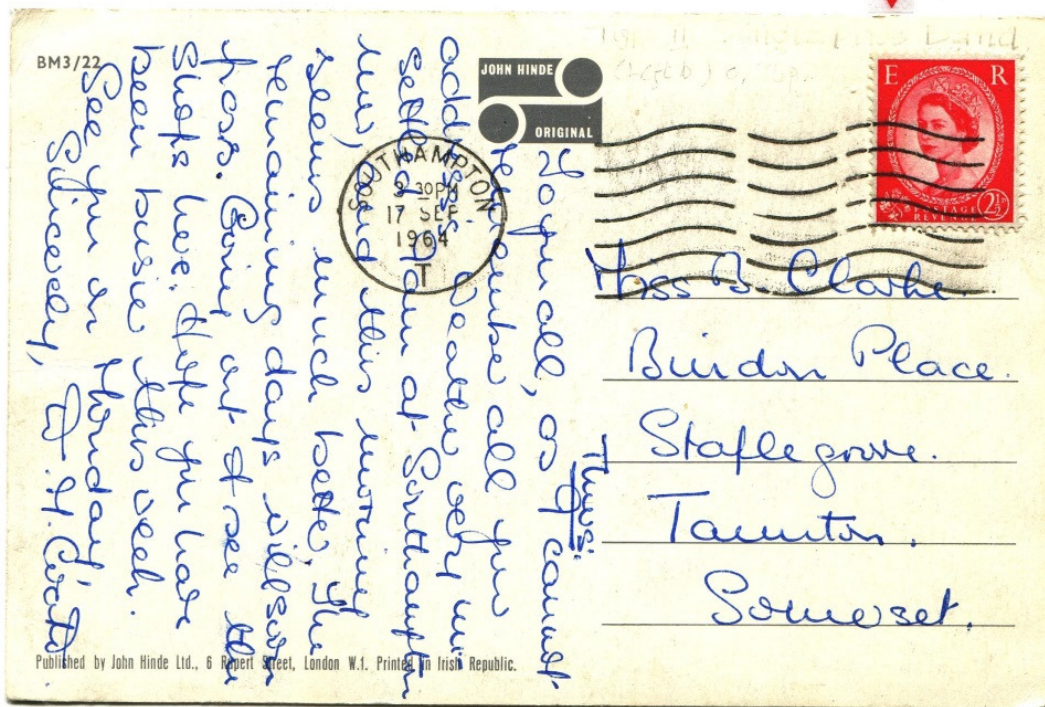 BM3/22
JOHN HINDE
ORIGINAL
E R
POSTAGE
REVENUE
2½
SOUTHAMPTON
30 PM
17 SEP
1964
T
Miss B. Clarke.
Bindon Place.
Staplegrove.
Taunton.
Somerset.
Thurs:
To you all, as I cannot
remember all your
addresses. Weather very
settled. I am at Southampton
now, and this morning
seems much better. The
remaining days will soon
pass. Going out to see the
Shops here. Hope you have
been busie this week.
See you on Monday
Sincerely,
Published by John Hinde Ltd., 6 Rupert Street, London W.1. Printed in Irish Republic.